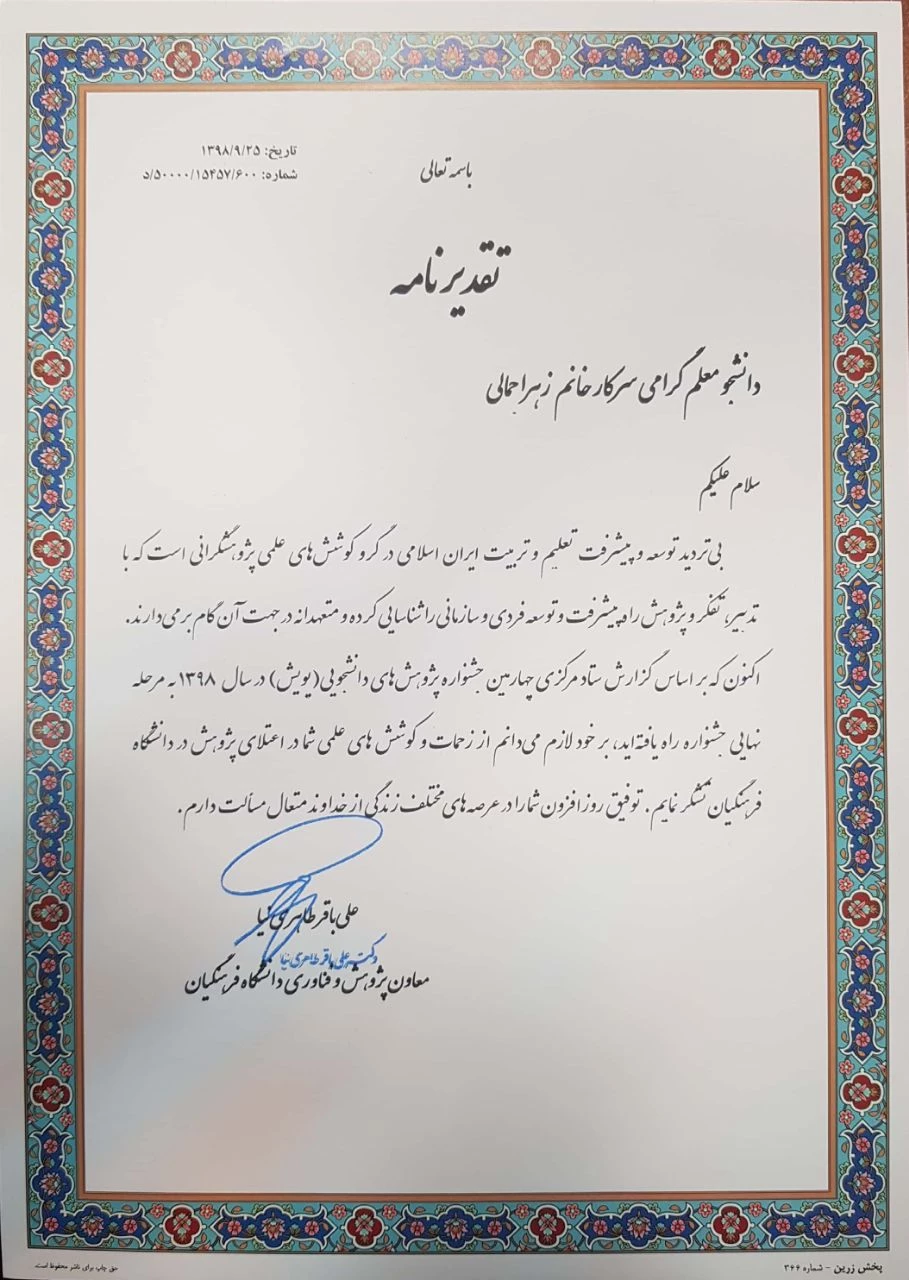 تاریخ: ۱۳۹۸/۹/۲۵
شماره: ۵۰۰۰۰/۱۵۴۵۷/۶۰۰/د
باسمه تعالی
تقدیرنامه
دانشجو معلم گرامی سرکار خانم زهرا جمالی
سلام علیکم
بی‌تردید توسعه و پیشرفت تعلیم و تربیت ایران اسلامی در گرو کوشش‌های علمی پژوهشگرانی است که با
تدبیر، تفکر و پژوهش راه پیشرفت و توسعه فردی و سازمانی را شناسایی کرده و متعهدانه در جهت آن گام برمی‌دارند.
اکنون که بر اساس گزارش ستاد مرکزی چهارمین جشنواره پژوهش‌های دانشجویی(پویش) در سال ۱۳۹۸ به مرحله
نهایی جشنواره راه یافته‌اید، بر خود لازم می‌دانم از زحمات و کوشش های علمی شما در اعتلای پژوهش در دانشگاه
فرهنگیان تشکر نمایم. توفیق روزافزون شما را در عرصه‌های مختلف زندگی از خداوند متعال مسألت دارم.
علی باقر طاهری نیا
دکتر علی باقر طاهری نیا
معاون پژوهش و فناوری دانشگاه فرهنگیان
پخش زرین - شماره ۳۶۶
حق چاپ برای ناشر محفوظ است.